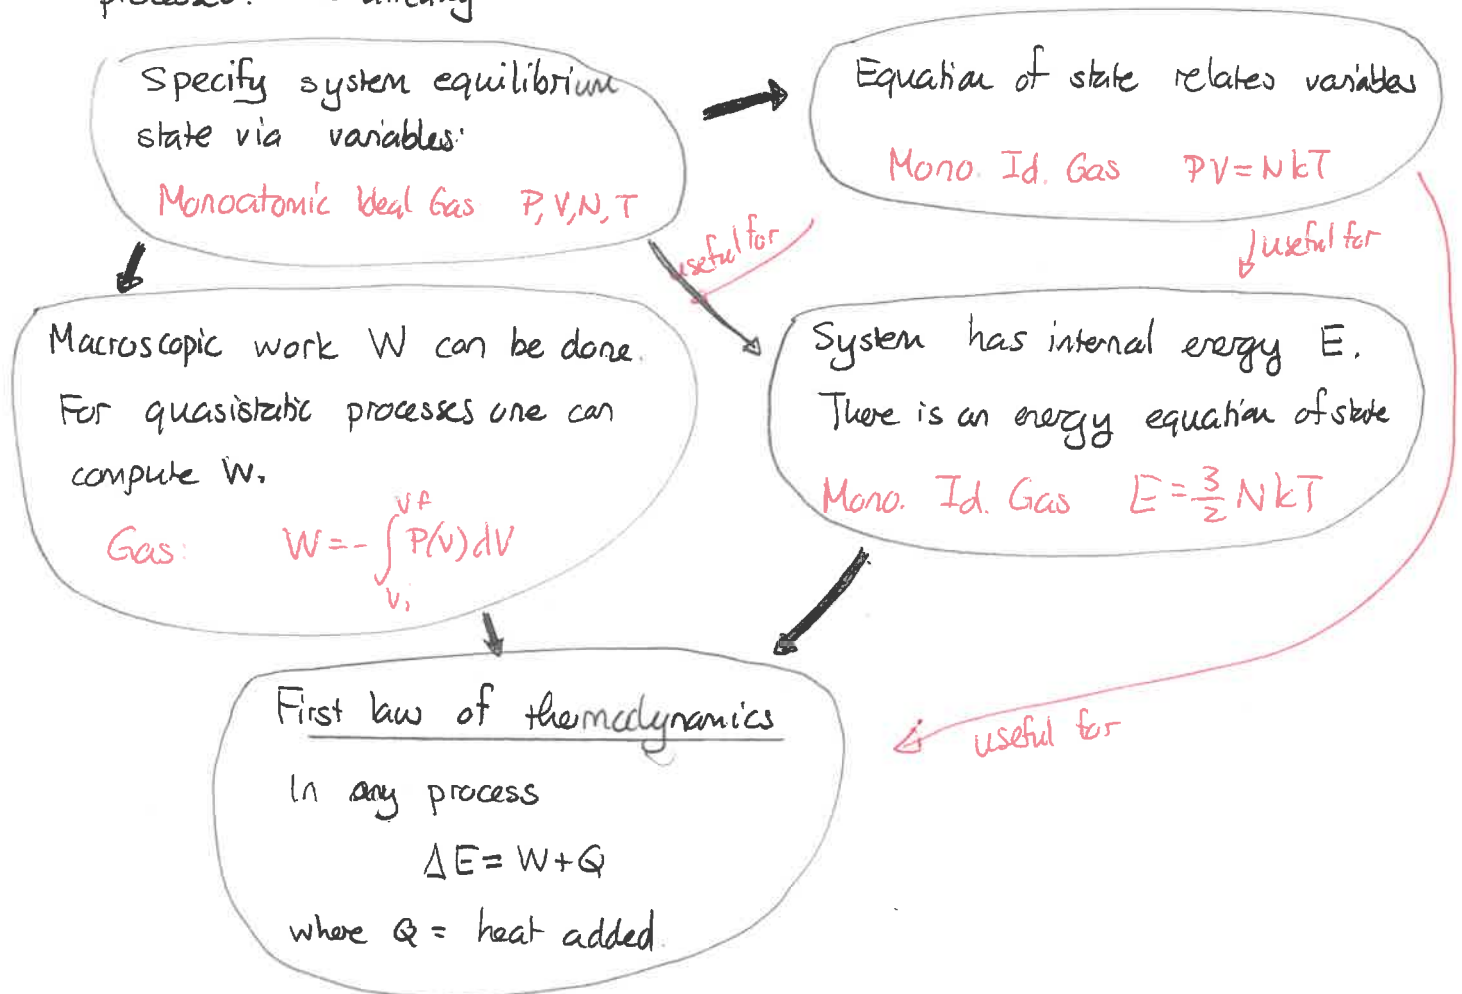 Specify system equilibrium
state via variables:
Monoatomic Ideal Gas P, V, N, T
Equation of state relates variables
Mono. Id. Gas PV = NkT
useful for
useful for
Macroscopic work W can be done.
For quasistatic processes one can
compute W.
Gas: W = - ∫ P(V) dV
Vf
Vi
System has internal energy E.
There is an energy equation of state
Mono. Id. Gas E = 3/2 NkT
First law of themodynamics
In any process
ΔE = W + Q
where Q = heat added.
useful for